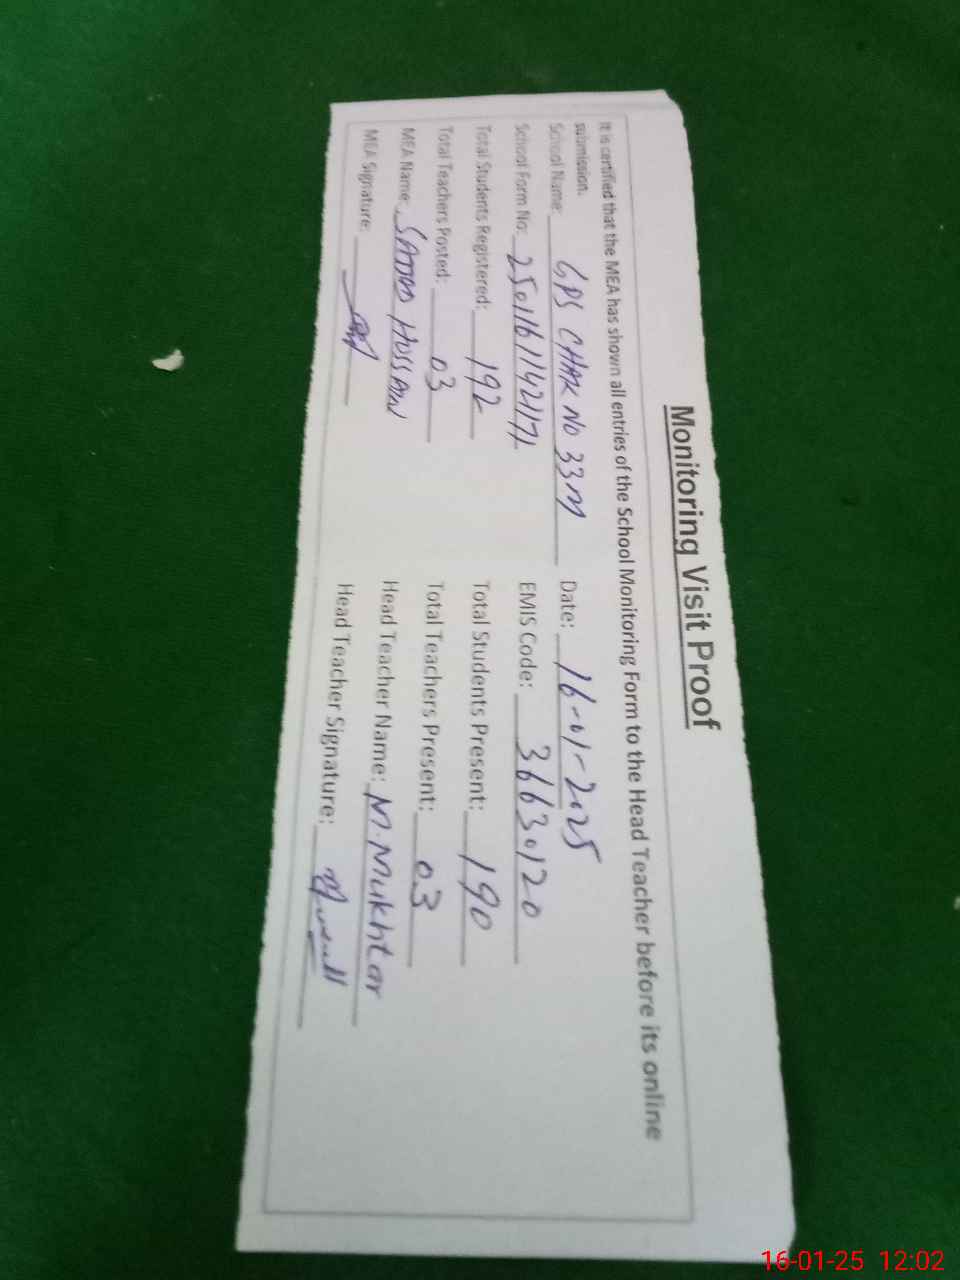 Monitoring Visit Proof
It is certified that the MEA has shown all entries of the School Monitoring Form to the Head Teacher before its online
submission.
School Name: GPS CHAK NO 33M Date: 16-01-2025
School Form No: 250116114217 EMIS Code: 36630120
Total Students Registered: 192 Total Students Present: 190
Total Teachers Posted: 03 Total Teachers Present: 03
MEA Name: HUSSAIN Head Teacher Name: M.Mukhtar
MEA Signature: Head Teacher Signature:
16-01-25 12:02